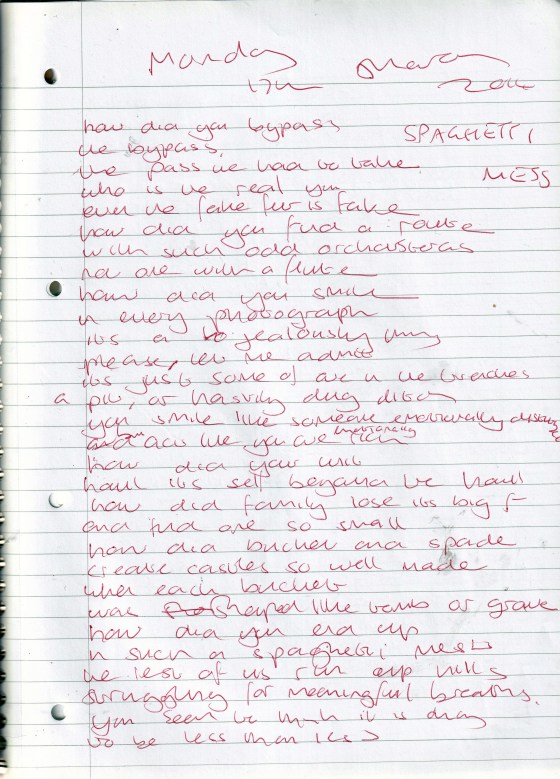 Monday March
17th 2014
how did you bypass
the bypass
SPAGHETTI
the pass we had to take
MESS
who is the real you
even the fake fur is fake
how did you find a route
with such odd orchasteras
not one with a flute
how did you smile
in every photograph
its a jealousy thing
please, let me admit
its just some of are in the trenches
a pit, or hastily dug ditch
you smile like someone emotionally
act like you are
how did your will
haul its self beyond the haul
how did family lose its big f
and find one so small
how did bucket and spade
create castles so well made
when each bucket
was shaped like tomb or grave
how did you end up
in such a spaghetti mess
the rest of us run up hills
struggling for meaningful breaths.
you seem to think it is okay
to be less than less